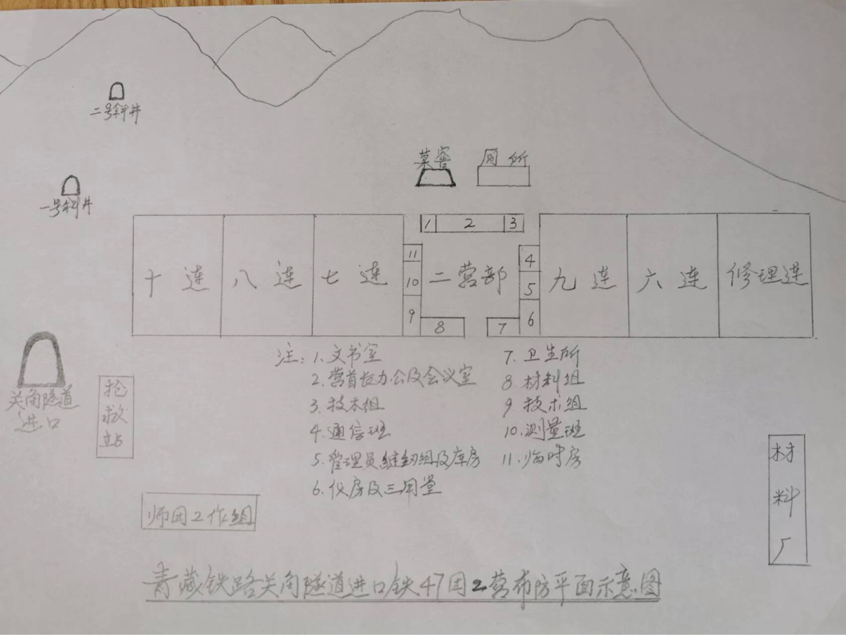 二号斜井
菜窖 厕所
一号斜井
1 2 3
十连 八连 七连 11 10 9 二营部 4 5 6 九连 六连 修理连
8 7
关角隧道
进口
抢救站
注:1.文书室
2.营首长办公及会议室
3.技术组
4.通信班
5.管理员缝纫组及库房
6.伙房及三用堂
7.卫生所
8.材料组
9.技术组
10.测量班
11.临时房
材料厂
师团工作组
青藏铁路关角隧道进口铁47团2营布防平面示意图